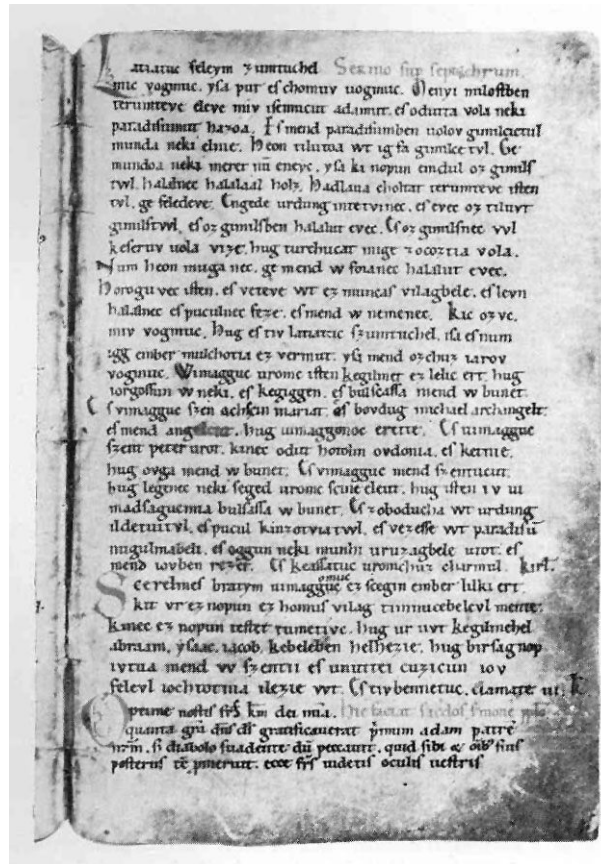 Latiatuc feleym zumtuchel Sermo sup sepulchrum.
mic vogmuc. ysa pur es chomuv uogmuc. Menyi milostben
terumteve eleve miv isemucut adamut. es odutta vola neki
paradisumut hazoa. Es mend paradisumben uolov gimilcictul
munda neki elnie. Heon tilutoa wt ig fa gimilce tvl. Ge
mundoa neki meret nū eneyc. ysa ki nopun emdul oz gimils
twl. halalnec halalaal holz. Hadlaua choltat terumteve isten
tvl. ge feledeve. Engede urdung intetvinec. es evec oz tiluvt
gimilstwl. es oz gimilsben halalut evec. Es oz gimilsnec vvl
keseruv uola vize. hug turchucat mige zocoztia vola.
Num heon muga nec. ge mend w foianec halalut evec.
Horogu vec isten. es veteve wt ez muncas vilagbele. es levn
halalnec es puculnec feze. es mend w nemenec. Kic ozvc.
miv vogmuc. Hug es tiv latiatuc szumtuchel. isa es num
igg ember mulchotia ez vermut. ysa mend ozchuz iarov
vogmuc. Wimagguc uromc isten kegilmet ez lelic ert. hug
iorgossun w neki. es kegiggen. es bulsassa mend w bunet.
Es vimagguc szen achscin mariat. es bovdug michael archangelt.
es mend angelcut. hug uimaggonoc erette. Es uimagguc
szent peter urot. kinec odut hotolm ovdonia. es ketnie.
hug ovga mend w bunet. Es vimagguc mend szentucut.
hug legenec neki seged uromc scine eleut. hug isten iv ui
madsagucmia bulsassa w bunet. Es zoboducha wt urdung
ildetuitvl. es pucul kinzotviatwl. es vezesse wt paradisū
nugulmabeli. es oggun neki munhi uruzagbele utot. es
mend iovben rezet. Es keassatuc uromchuz charmul. kirl.
Scerelmes bratym uimagguomuc ez scegin ember lilki ert.
kit vr ez nopun ez homus vilag timnucebelevl mente.
kinec ez nopun testet tumetivc. hug ur uvt kegilmehel
abraam. ysaac. iacob. kebeleben helhezie. hug birsagnop
ivtva mend w szentii es unuttei cuzicun iov
felevl iochtotnia ilezie wt. Es tivbennetuc. clamate iii. k.
Optime nostis frs km dei mia.
quanta gra dns ds gratificauerat pmum adam patrē
nrm. si diabolo suadente dū peccauit. quid sibi et oib suis
posteris ecce frs uidetis oculis uestris